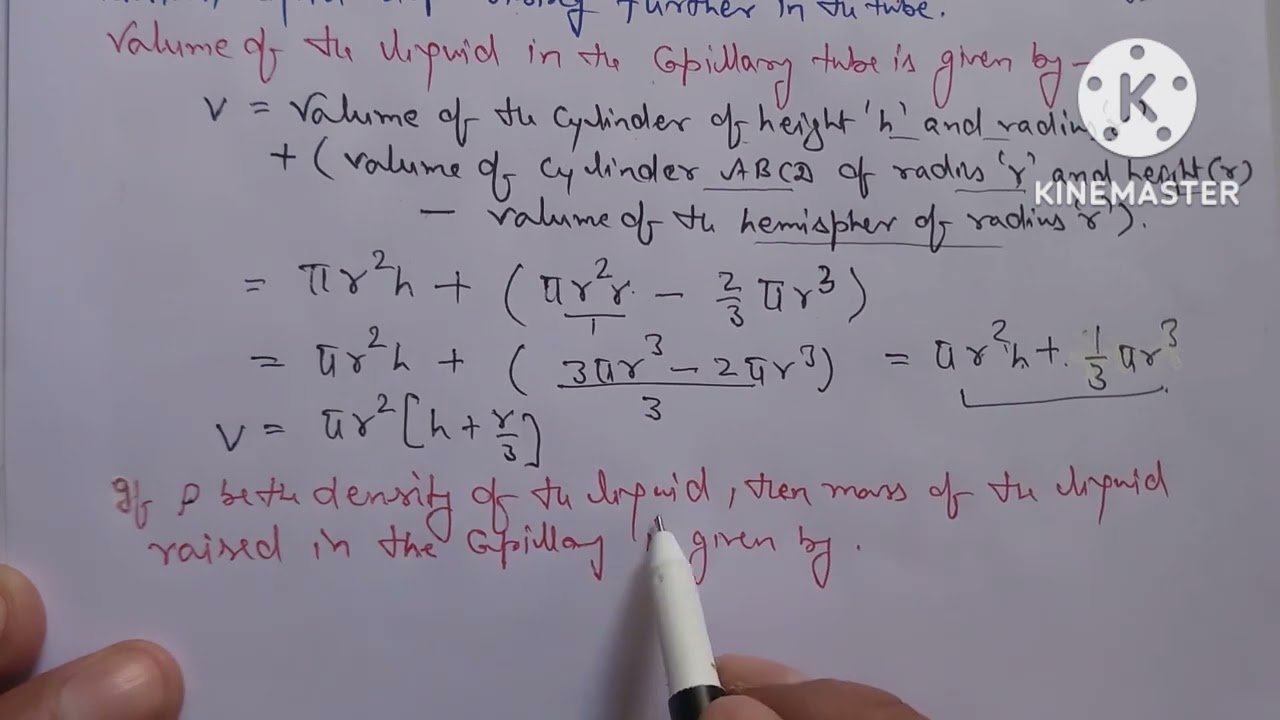 further in the tube.
Valume of the liquid in the Capillary tube is given by -
V = Valume of the Cylinder of height 'h' and radius
+ ( valume of Cylinder ABCD of radius 'r' and height (r)
- valume of the hemispher of radius 'r').
= πr²h + ( πr²r - 2/3 πr³ )
= πr²h + ( 3πr³ - 2πr³ / 3 ) = πr²h + 1/3 πr³
V = πr² [ h + r/3 ]
If ρ be the density of the liquid, then mass of the liquid
raised in the Capillary given by.
K
KINEMASTER